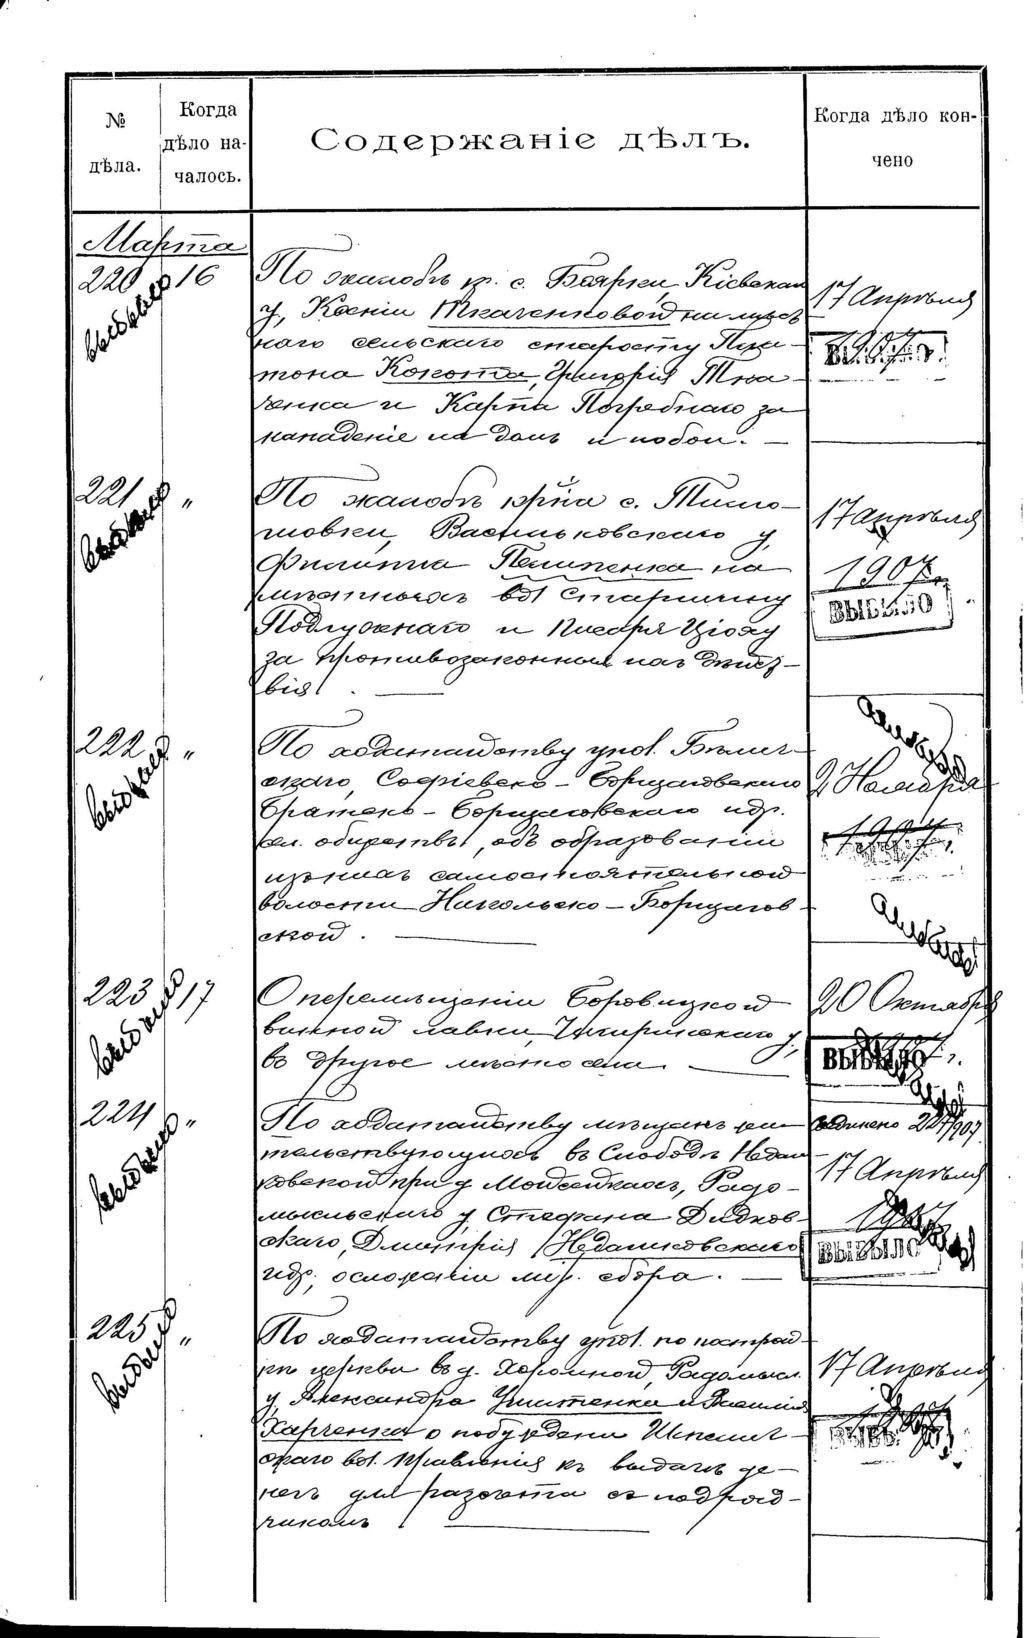 № дѣла.
Когда дѣло началось.
Содержаніе дѣлъ.
Когда дѣло кончено
Марта
220 16
выбыло
По жалобѣ кр. с. Боярки, Кіевскаго
у., Ксеніи Ткаченковой на мѣст-
наго сельскаго старосту Пла-
тона Кокота, Григорія Тка-
ченка и Карпа Погребнаго за
нападеніе на домъ и побои. —
17 Апрѣля
1907 г.
ВЫБЫЛО
221 "
выбыло
По жалобѣ кр-на с.
Васильковскаго у.
Филиппа Пелипенка на
мѣстныхъ вол. Старшину
Подлужнаго и Писаря
за противозаконныя ихъ дѣйст-
вія. —
17 апрѣля
1907 г.
ВЫБЫЛО
222 "
выбыло
По ходатайству упол. Бѣлич-
скаго, Софіевско-Борщаговскаго
Братско-Борщаговскаго и др.
сел. обществъ, объ образованіи
изъ нихъ самостоятельной
волости Никольско-Борщагов-
ской. —
2 Ноября
1907 г.
223 17
выбыло
О перемѣщеніи Боровицкой
винной лавки, Чигиринскаго у.,
въ другое мѣсто села. —
20 Октября
1907 г.
ВЫБЫЛО
224 "
выбыло
По ходатайству мѣщанъ жи-
тельствующихъ въ Слободѣ Недаш-
ковской при д. Мойсейкахъ, Радо-
мысльскаго у. Стефана Дидков-
скаго, Дмитрія Недашковскаго
и др., о сложеніи мір. сбора. —
17 Апрѣля
1907
ВЫБЫЛО
225 "
выбыло
По ходатайству упол. по построй-
кѣ церкви въ д. Хоромной, Радомысл.
у. Александра и Василія
Харченка о побужденіи Шепелич-
скаго вол. правленія къ выдачѣ де-
негъ для разсчета съ подряд-
чикомъ. —
17 Апрѣля
1907 г.